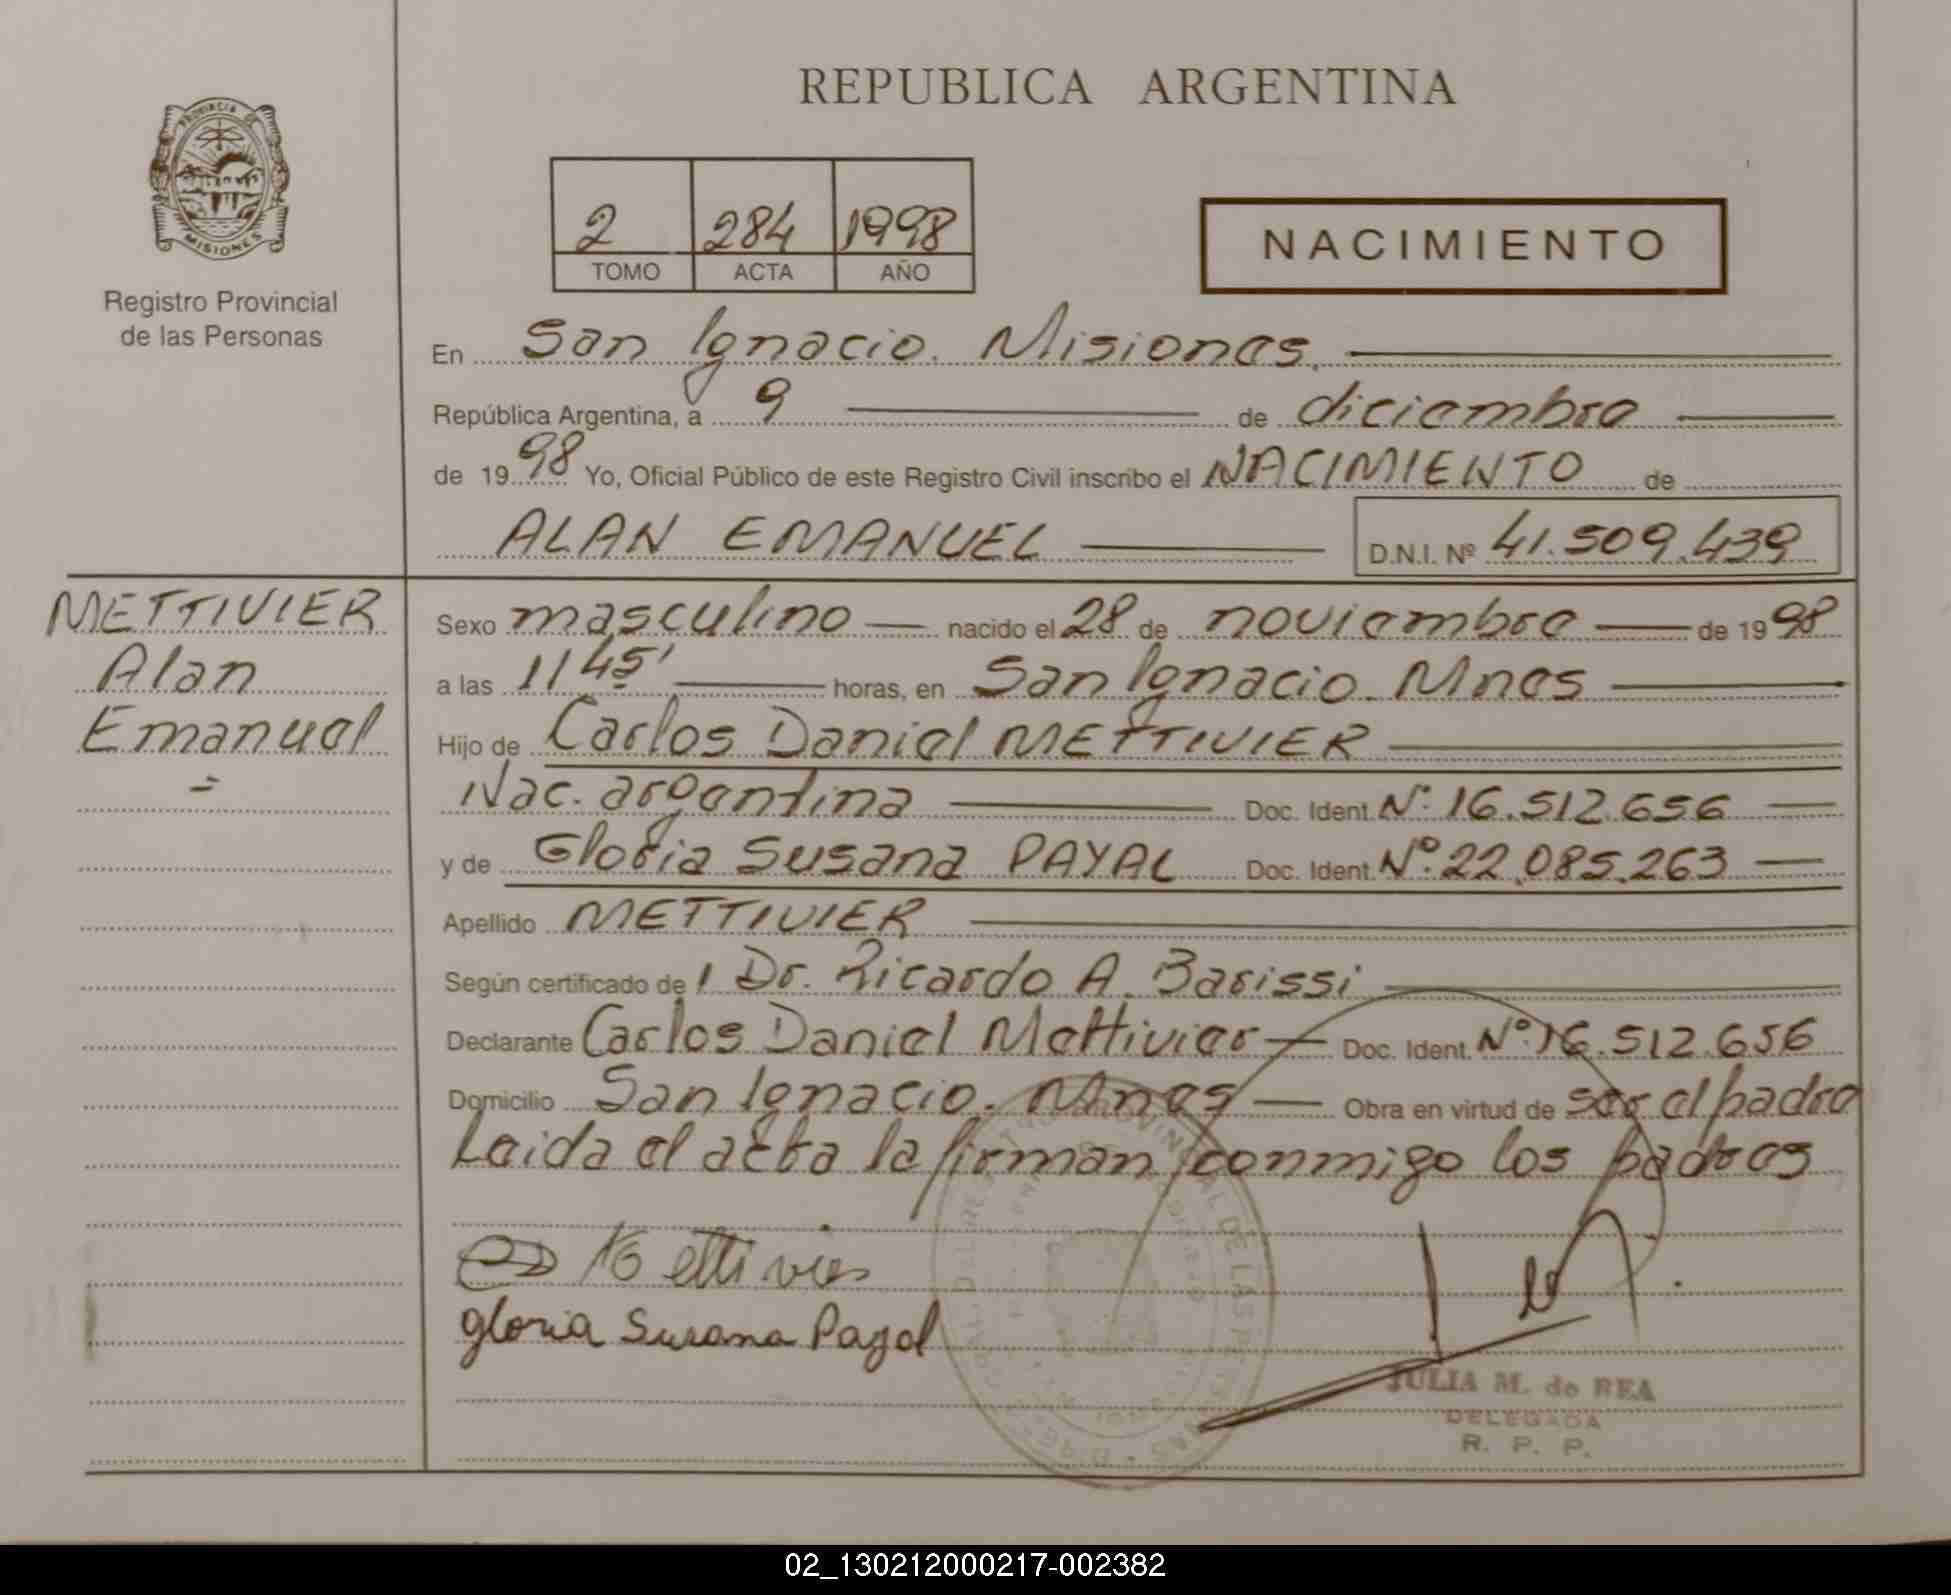 REPUBLICA ARGENTINA
PROVINCIA DE
MISIONES
Registro Provincial
de las Personas
2 284 1998
TOMO ACTA AÑO
NACIMIENTO
En San Ignacio. Misiones.
República Argentina, a 9 de diciembre
de 1998 Yo, Oficial Público de este Registro Civil inscribo el NACIMIENTO de
ALAN EMANUEL D.N.I. Nº 41.509.439
METTIVIER
Alan
Emanuel
=
Sexo masculino nacido el 28 de noviembre de 1998
a las 11 45' horas, en San Ignacio. Mnes
Hijo de Carlos Daniel METTIVIER
Nac. argentina Doc. Ident. Nº 16.512.656
y de Gloria Susana PAYAL Doc. Ident. Nº 22.085.263
Apellido METTIVIER
Según certificado de l Dr. Ricardo A. Barissi
Declarante Carlos Daniel Mettivier Doc. Ident. Nº 16.512.656
Domicilio San Ignacio. Mnes Obra en virtud de ser el padre
Leida el acta la firman conmigo los padres
Mettivier
gloria Susana Payal
JULIA M. de REA
DELEGADA
R. P. P.
02_130212000217-002382